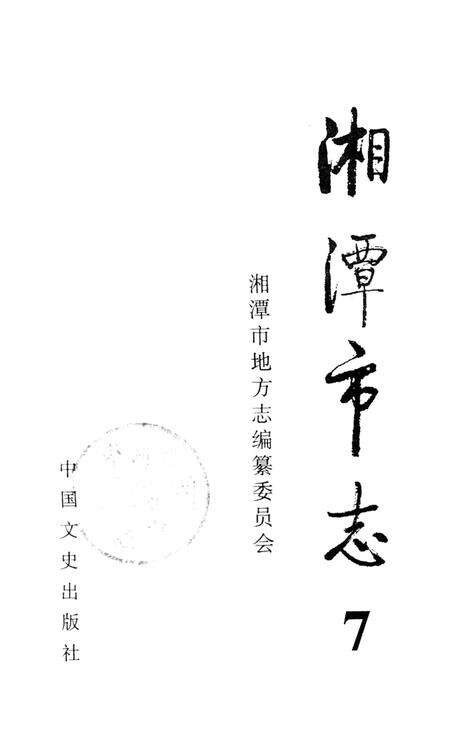 湘潭市志
7
湘潭市地方志编纂委员会
中国文史出版社